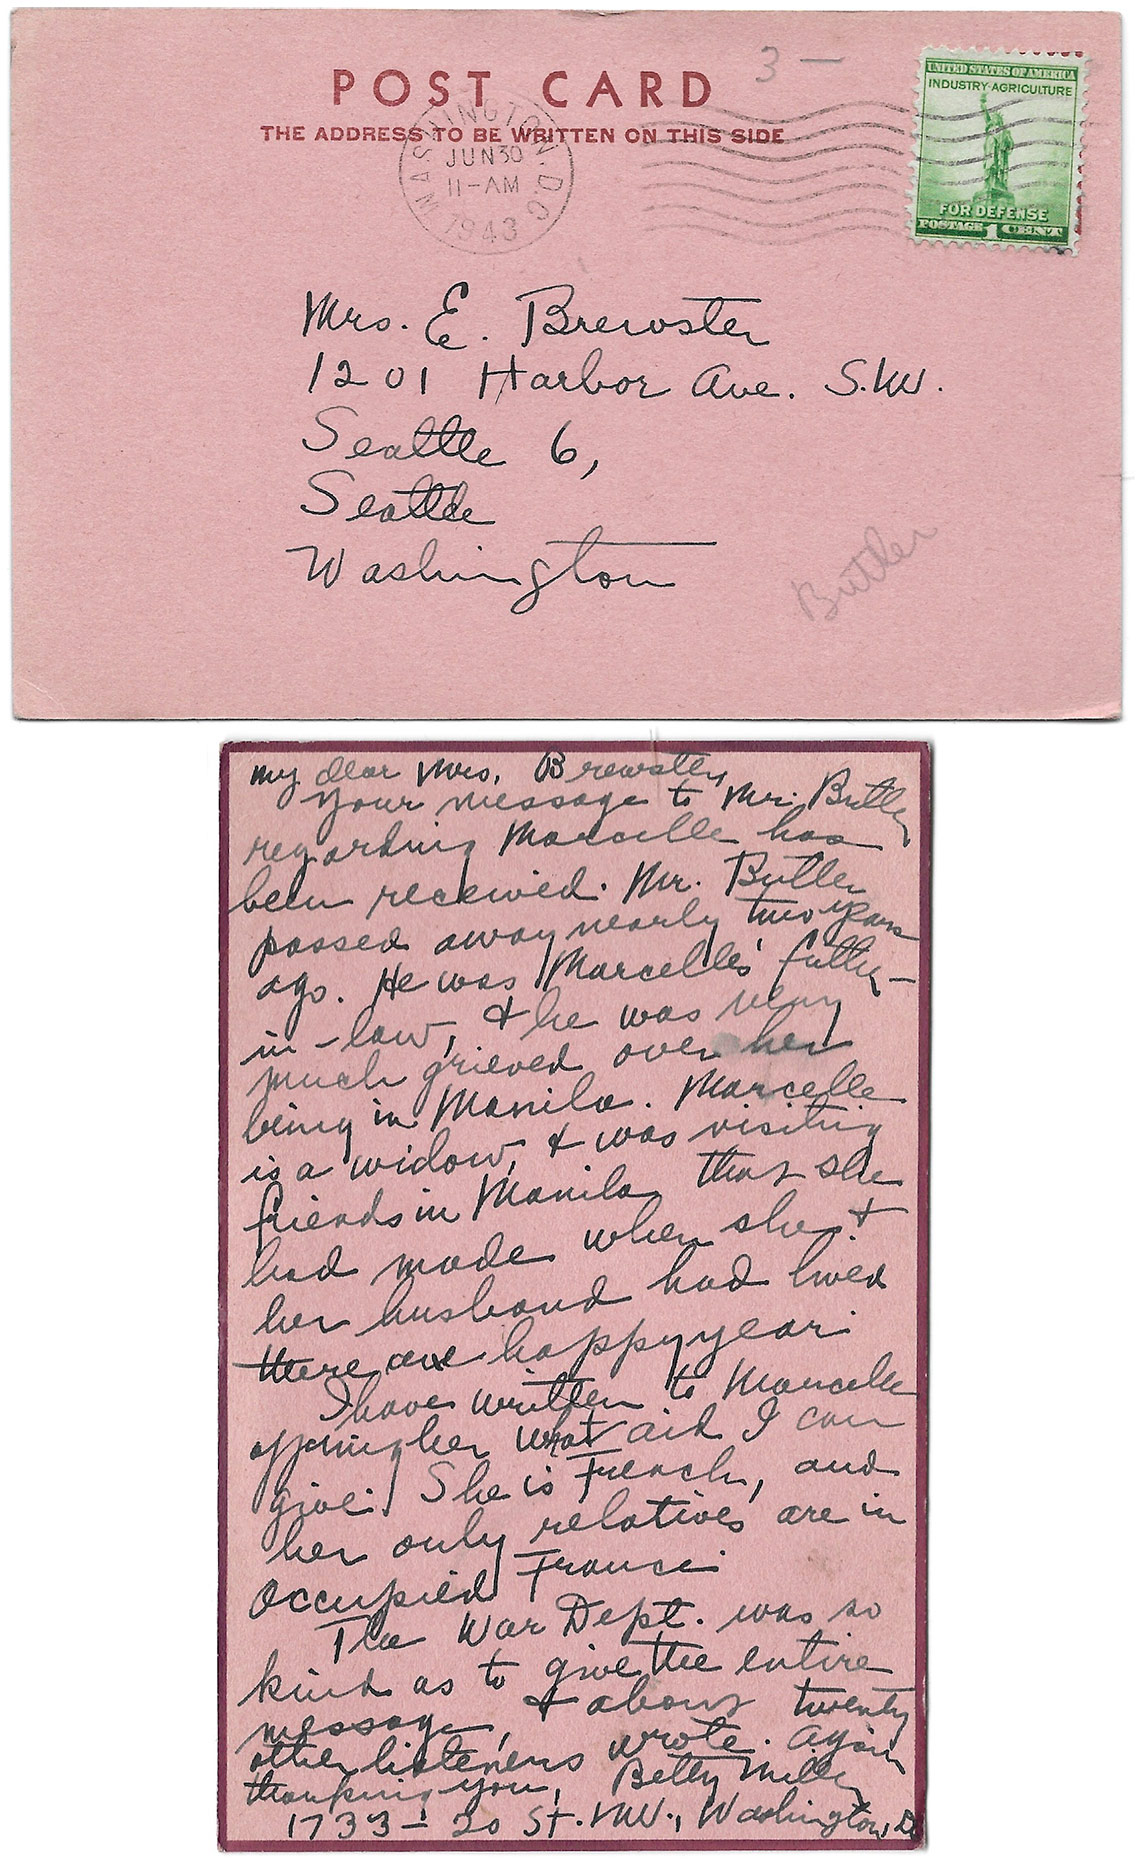 3 —
POST CARD
THE ADDRESS TO BE WRITTEN ON THIS SIDE
WASHINGTON, D.C.
JUN 30
11-AM
1943
UNITED STATES OF AMERICA
INDUSTRY-AGRICULTURE
FOR DEFENSE
POSTAGE 1 CENT
Mrs. E. Brewster
1201 Harbor Ave. S.W.
Seattle 6,
Seattle
Washington
Butler
My dear Mrs. Brewster,
Your message to Mr. Butler
regarding Marcelle has
been received. Mr. Butler
passed away nearly two years
ago. He was Marcelle's father-
in-law, & he was very
much grieved over her
being in Manila. Marcelle
is a widow, & was visiting
friends in Manila that she
had made when she &
her husband had lived
there one happy year.
I have written to Marcelle
offering her what aid I can
give. She is French, and
her only relatives are in
Occupied France.
The War Dept. was so
kind as to give the entire
message, & about twenty
other listeners wrote. Again
thanking you, Betty Miller
1733 - 20 St. NW., Washington, D.